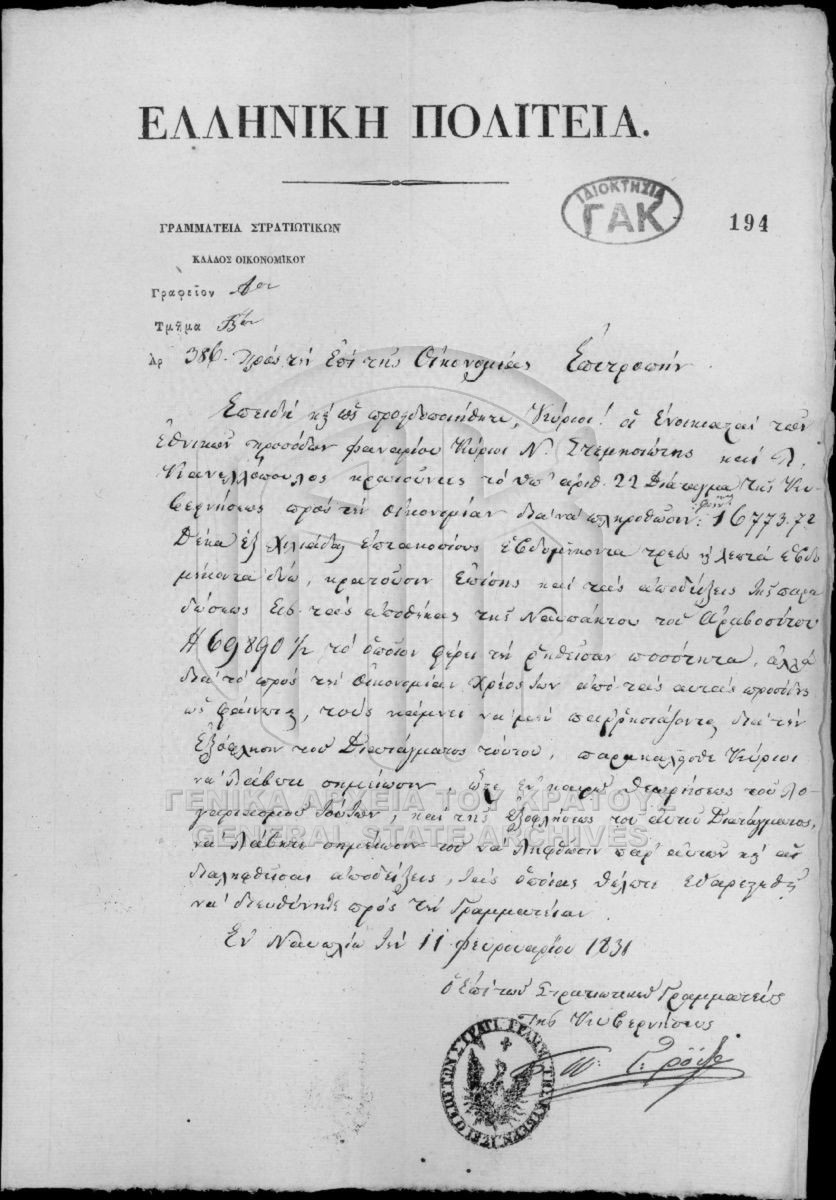 ΕΛΛΗΝΙΚΗ ΠΟΛΙΤΕΙΑ.
ΙΔΙΟΚΤΗΣΙΑ
ΓΑΚ
194
ΓΡΑΜΜΑΤΕΙΑ ΣΤΡΑΤΙΩΤΙΚΩΝ
ΚΛΑΔΟΣ ΟΙΚΟΝΟΜΙΚΟΥ
Γραφεῖον Αον
Τμῆμα Βον
Ἀρ 386. Πρὸς τὴν Ἐπὶ τῆς Οἰκονομίας Ἐπιτροπήν
Ἐπειδὴ κὴ ὡς προειδοποιήθητε, Κύριοι! οἱ Ἐνοικιασταὶ τῶν
Ἐθνικῶν προσόδων Φαναρίου Κύριοι Ν. Στεμνιώτης καὶ
Κανελλόπουλος κρατοῦντες τὸ ὑπ' ἀριθ. 22 Διάταγμα τῆς Κυ-
βερνήσεως πρὸς τὴν οἰκονομίαν διὰ νὰ πληρωθῶσιν: 16773.72
Δέκα ἓξ χιλιάδας ἑπτακοσίους ἑβδομήκοντα τρεῖς κὴ λεπτὰ ἑβδο
μήκοντα δύω, κρατοῦσιν ἐπίσης καὶ τὰς ἀποδείξεις τῆς παρα
δώσεως εἰς τὰς ἀποθήκας τῆς Ναυπάκτου τοῦ Ἀραβοσίτου
69890 ½ τὸ ὁποῖον φέρει τὴν ῥηθεῖσαν ποσότητα, ἀλλὰ
διὰ τὸ πρὸς τὴν οἰκονομίαν χρέος των ἀπὸ τὰς αὐτὰς προσόδους
ὡς φαίνεται, τοὺς κάμνει νὰ μὴ παρρησιάζονται διὰ τὴν
ἐξόφλησιν τοῦ Διατάγματος τούτου, παρακαλεῖσθε Κύριοι
νὰ λάβετε σημείωσιν, ὥστε ἐν καιρῷ θεωρήσεως τοῦ λο-
γαριασμοῦ τούτων, καὶ τῆς ἐξοφλήσεως τοῦ αὐτοῦ Διατάγματος,
νὰ λάβητε σημείωσιν τοῦ νὰ ληφθῶσιν παρ' αὐτῶν κὴ αἱ
διαληφθεῖσαι ἀποδείξεις, τὰς ὁποίας θέλετε εὐαρεστηθῆ
νὰ διευθύνητε πρὸς τὴν Γραμματείαν.
Ἐν Ναυπλίῳ τὴν 11 Φεβρουαρίου 1831
ὁ Ἐπὶ τῶν Στρατιωτικῶν Γραμματεὺς
τῆς Κυβερνήσεως
ΓΕΝΙΚΑ ΑΡΧΕΙΑ ΤΟΥ ΚΡΑΤΟΥΣ
GENERAL STATE ARCHIVES